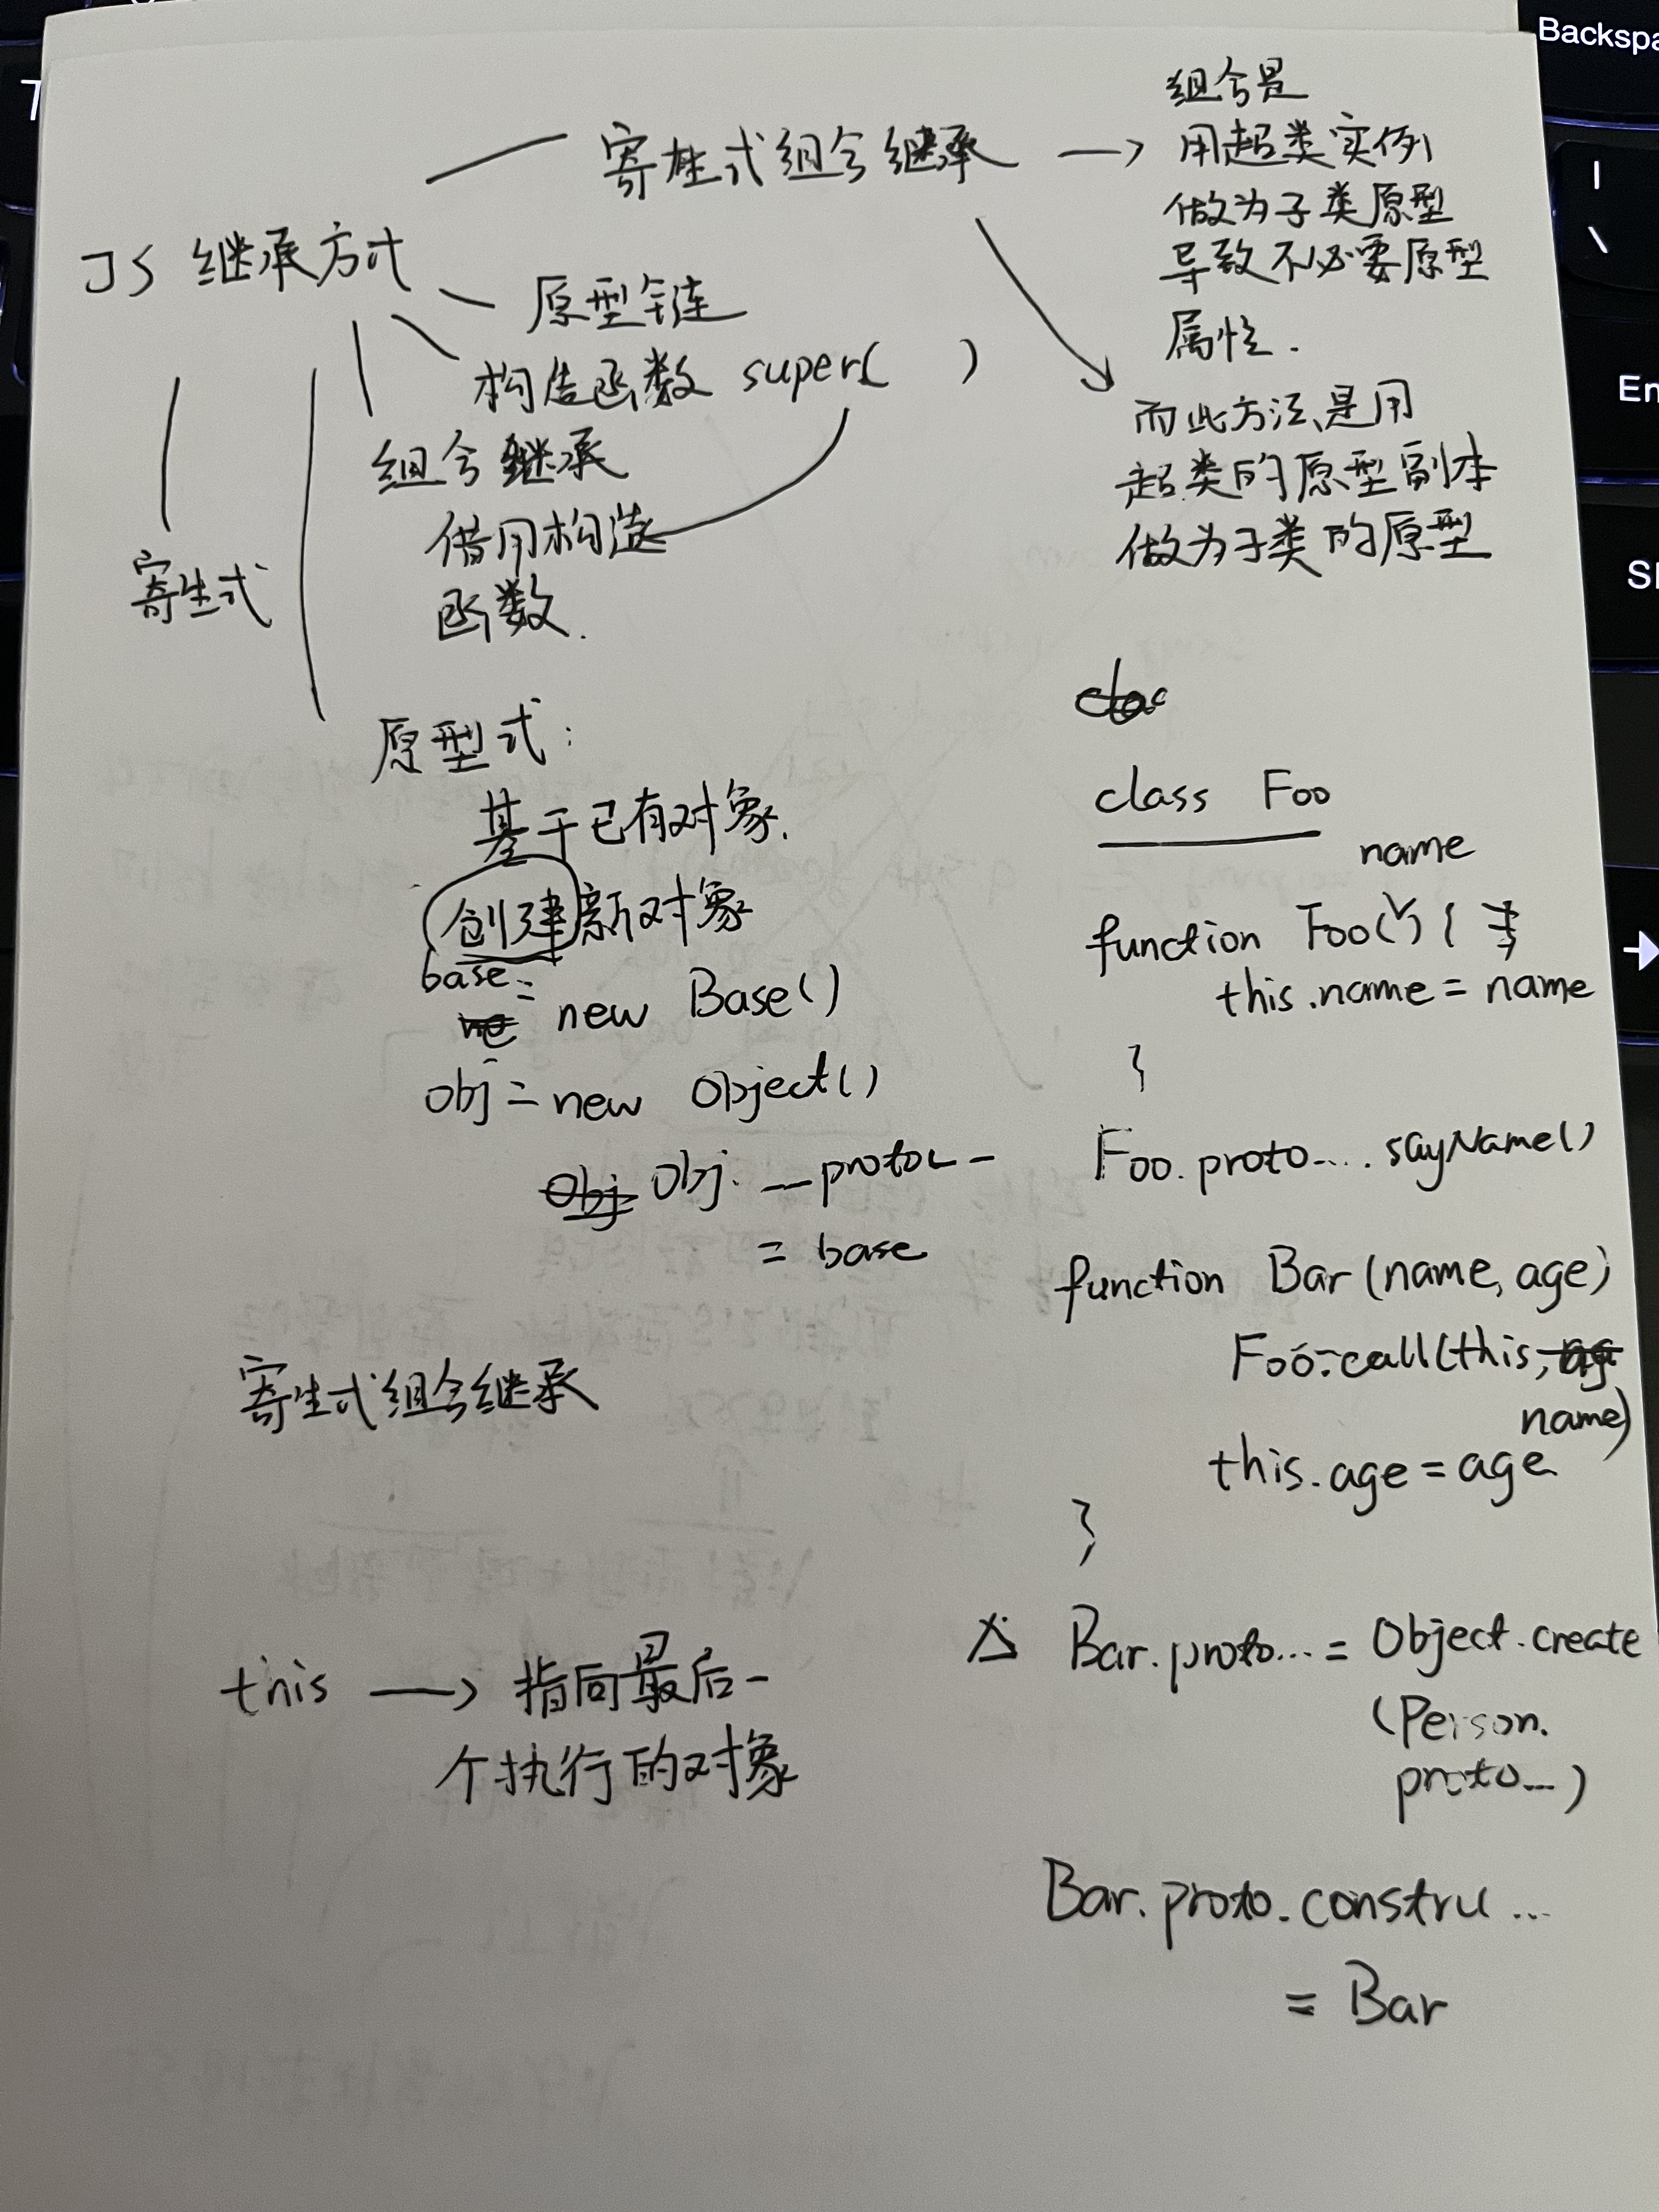 JS 继承方式
寄生式组合继承 →
组合是
用超类实例
做为子类原型
导致不必要原型
属性.
而此方法是用
超类的原型副本
做为子类的原型
原型链
构造函数 super( )
组合继承
借用构造
函数.
寄生式
原型式:
基于已有对象.
创建新对象
base = new Base()
obj = new Object()
obj.__proto__
= base
寄生式组合继承
this → 指向最后一
个执行的对象
class Foo
name
function Foo( ) {
this.name = name
}
Foo.proto.... sayName()
function Bar (name, age)
Foo.call(this,
name)
this.age = age
}
△ Bar.proto... = Object.create
(Person.
proto...)
Bar.proto.constru...
= Bar
Backspa
T
|
\
En
Sh
→